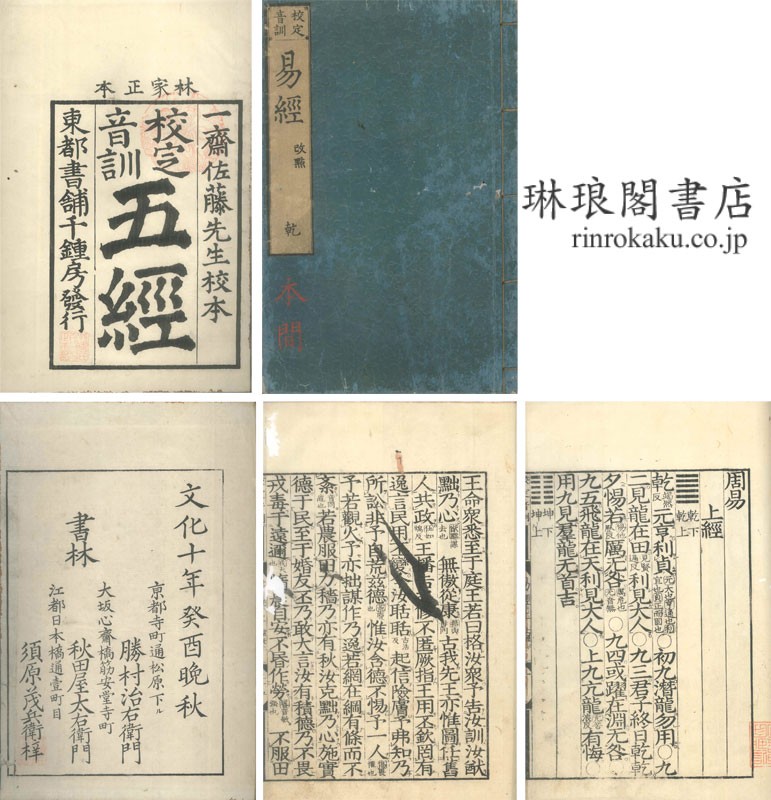 林家正本
一齋佐藤先生校本
校定
音訓
五經
東都書舗千鍾房發行
校定
音訓
易經
改點
乾
本間
琳琅閣書店
rinrokaku.co.jp
文化十年癸酉晩秋
京都寺町通松原下ル
勝村治右衛門
大坂心齋橋筋安堂寺町
秋田屋太右衛門
江都日本橋通壹町目
須原茂兵衛梓
書林
王命衆悉至于庭王若曰格汝衆予告汝訓汝猷
黜乃心 無傲從康 古我先王亦惟圖任舊
人共政 王播告 不匿厥指王用丕欽罔有
逸言民用丕變 汝聒聒 起信險膚予弗知乃
所訟非予自荒兹德 惟汝含德不惕予一人
予若觀火予亦拙謀作乃逸若網在綱有條而不
紊 若農服田力穡乃亦有秋汝克黜乃心施實
德于民至于婚友丕乃敢大言汝有積德乃不畏
戎毒于遠邇 農自安不昬作勞 不服田
周易
上經
乾下
乾上
乾 元亨利貞 初九潛龍勿用○九
二見龍在田 利見大人○九三君子終日乾乾
夕惕若厲无咎 ○九四或躍在淵无咎○
九五飛龍在天利見大人○上九亢龍有悔
用九見羣龍无首吉
坤下
坤上